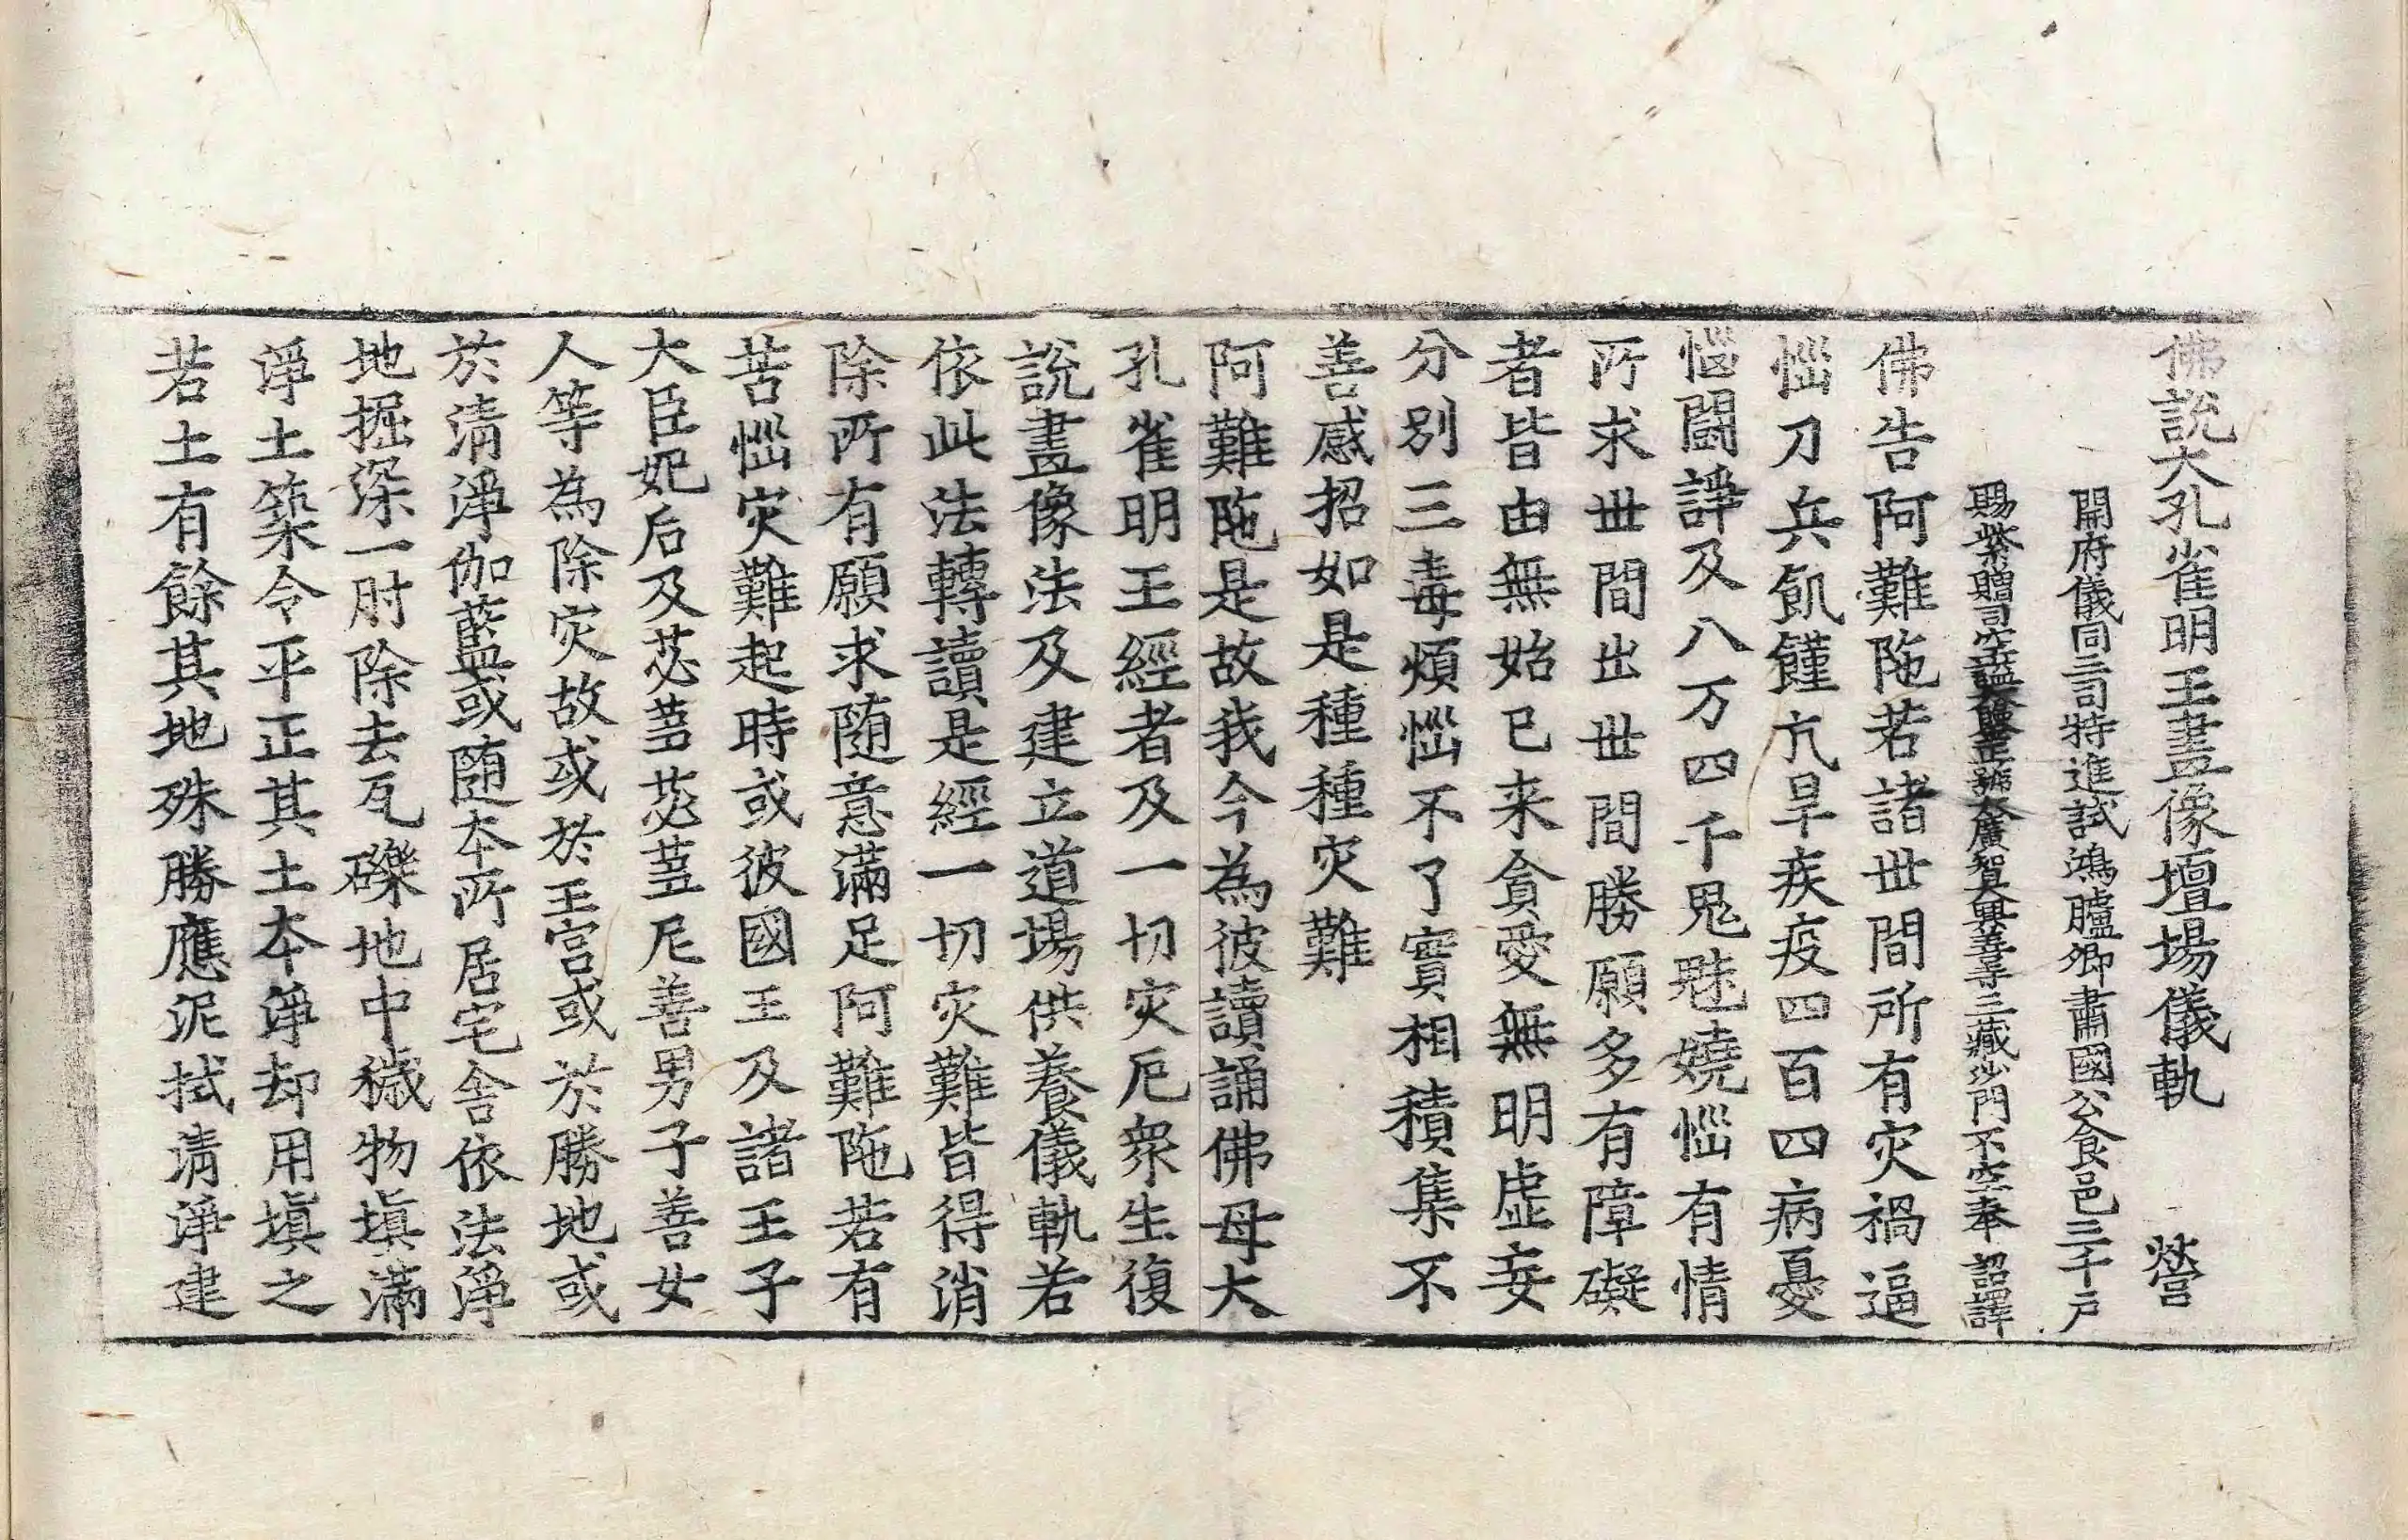 佛說大孔雀明王畫像壇場儀軌 營
開府儀同三司特進試鴻臚卿肅國公食邑三千戶
賜紫贈司空謚大鑒正號大廣智大興善寺三藏沙門不空奉 詔譯
佛告阿難陁若諸世間所有灾禍逼
惱刀兵飢饉亢旱疾疫四百四病憂
惱鬪諍及八万四千鬼魅嬈惱有情
所求世間出世間勝願多有障礙
者皆由無始已来貪愛無明虛妄
分別三毒煩惱不了實相積集不
善感招如是種種灾難
阿難陁是故我今為彼讀誦佛母大
孔雀明王經者及一切灾厄衆生復
說畫像法及建立道場供養儀軌若
依此法轉讀是經一切灾難皆得消
除所有願求隨意滿足阿難陁若有
苦惱灾難起時或彼國王及諸王子
大臣妃后及苾蒭苾蒭尼善男子善女
人等為除灾故或於王宮或於勝地或
於清淨伽藍或随本所居宅舍依法淨
地掘深一肘除去瓦礫地中穢物填滿
淨土築令平正其土本淨却用填之
若土有餘其地殊勝應泥拭清淨建